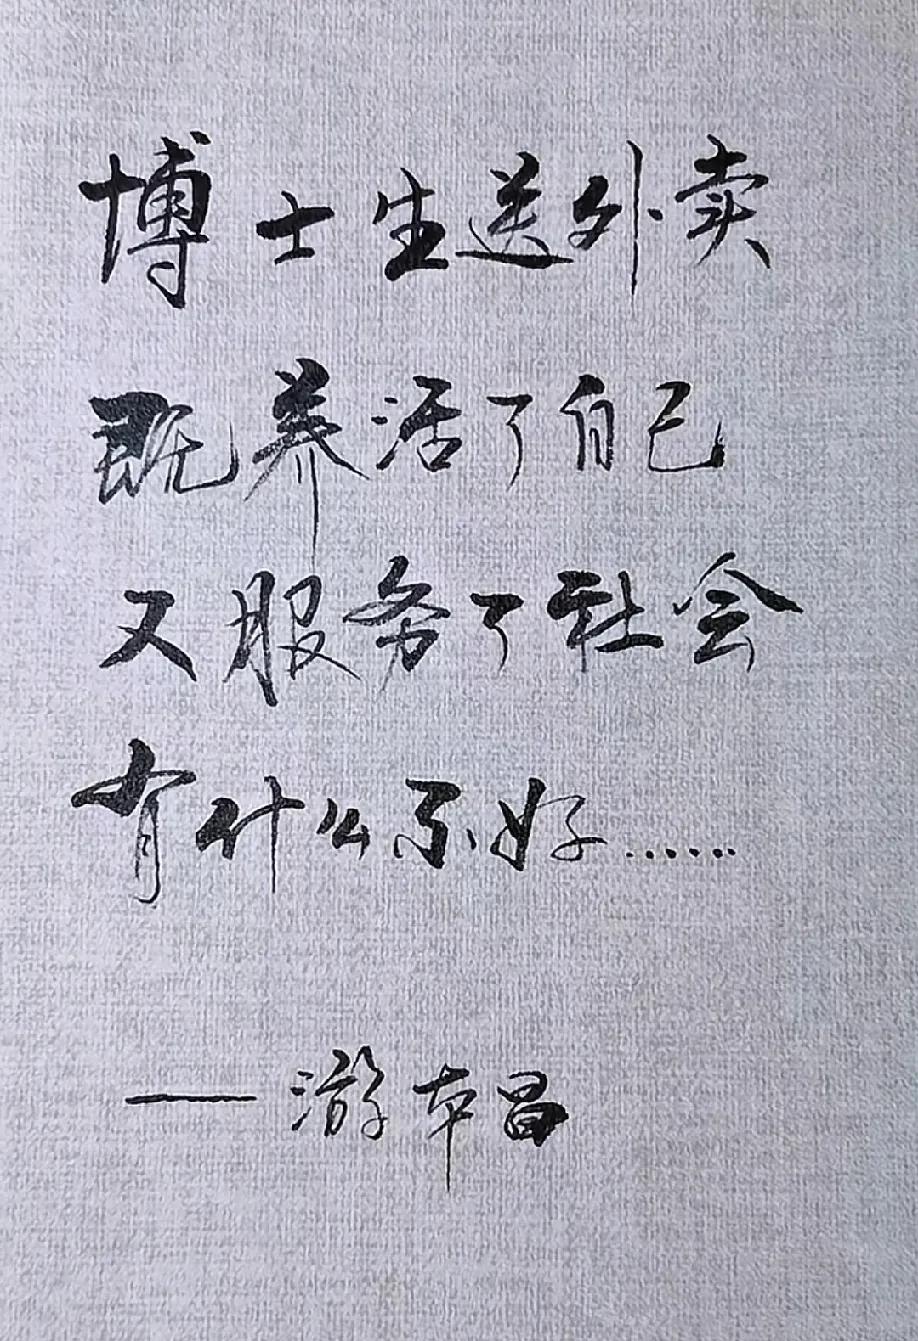 博士生送外卖
既养活了自己
又服务了社会
有什么不好……
——游本昌